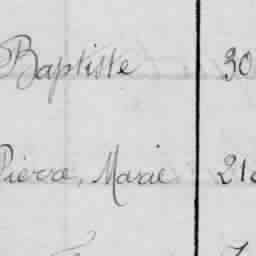 Baptiste 30
Pierre, Marie 21